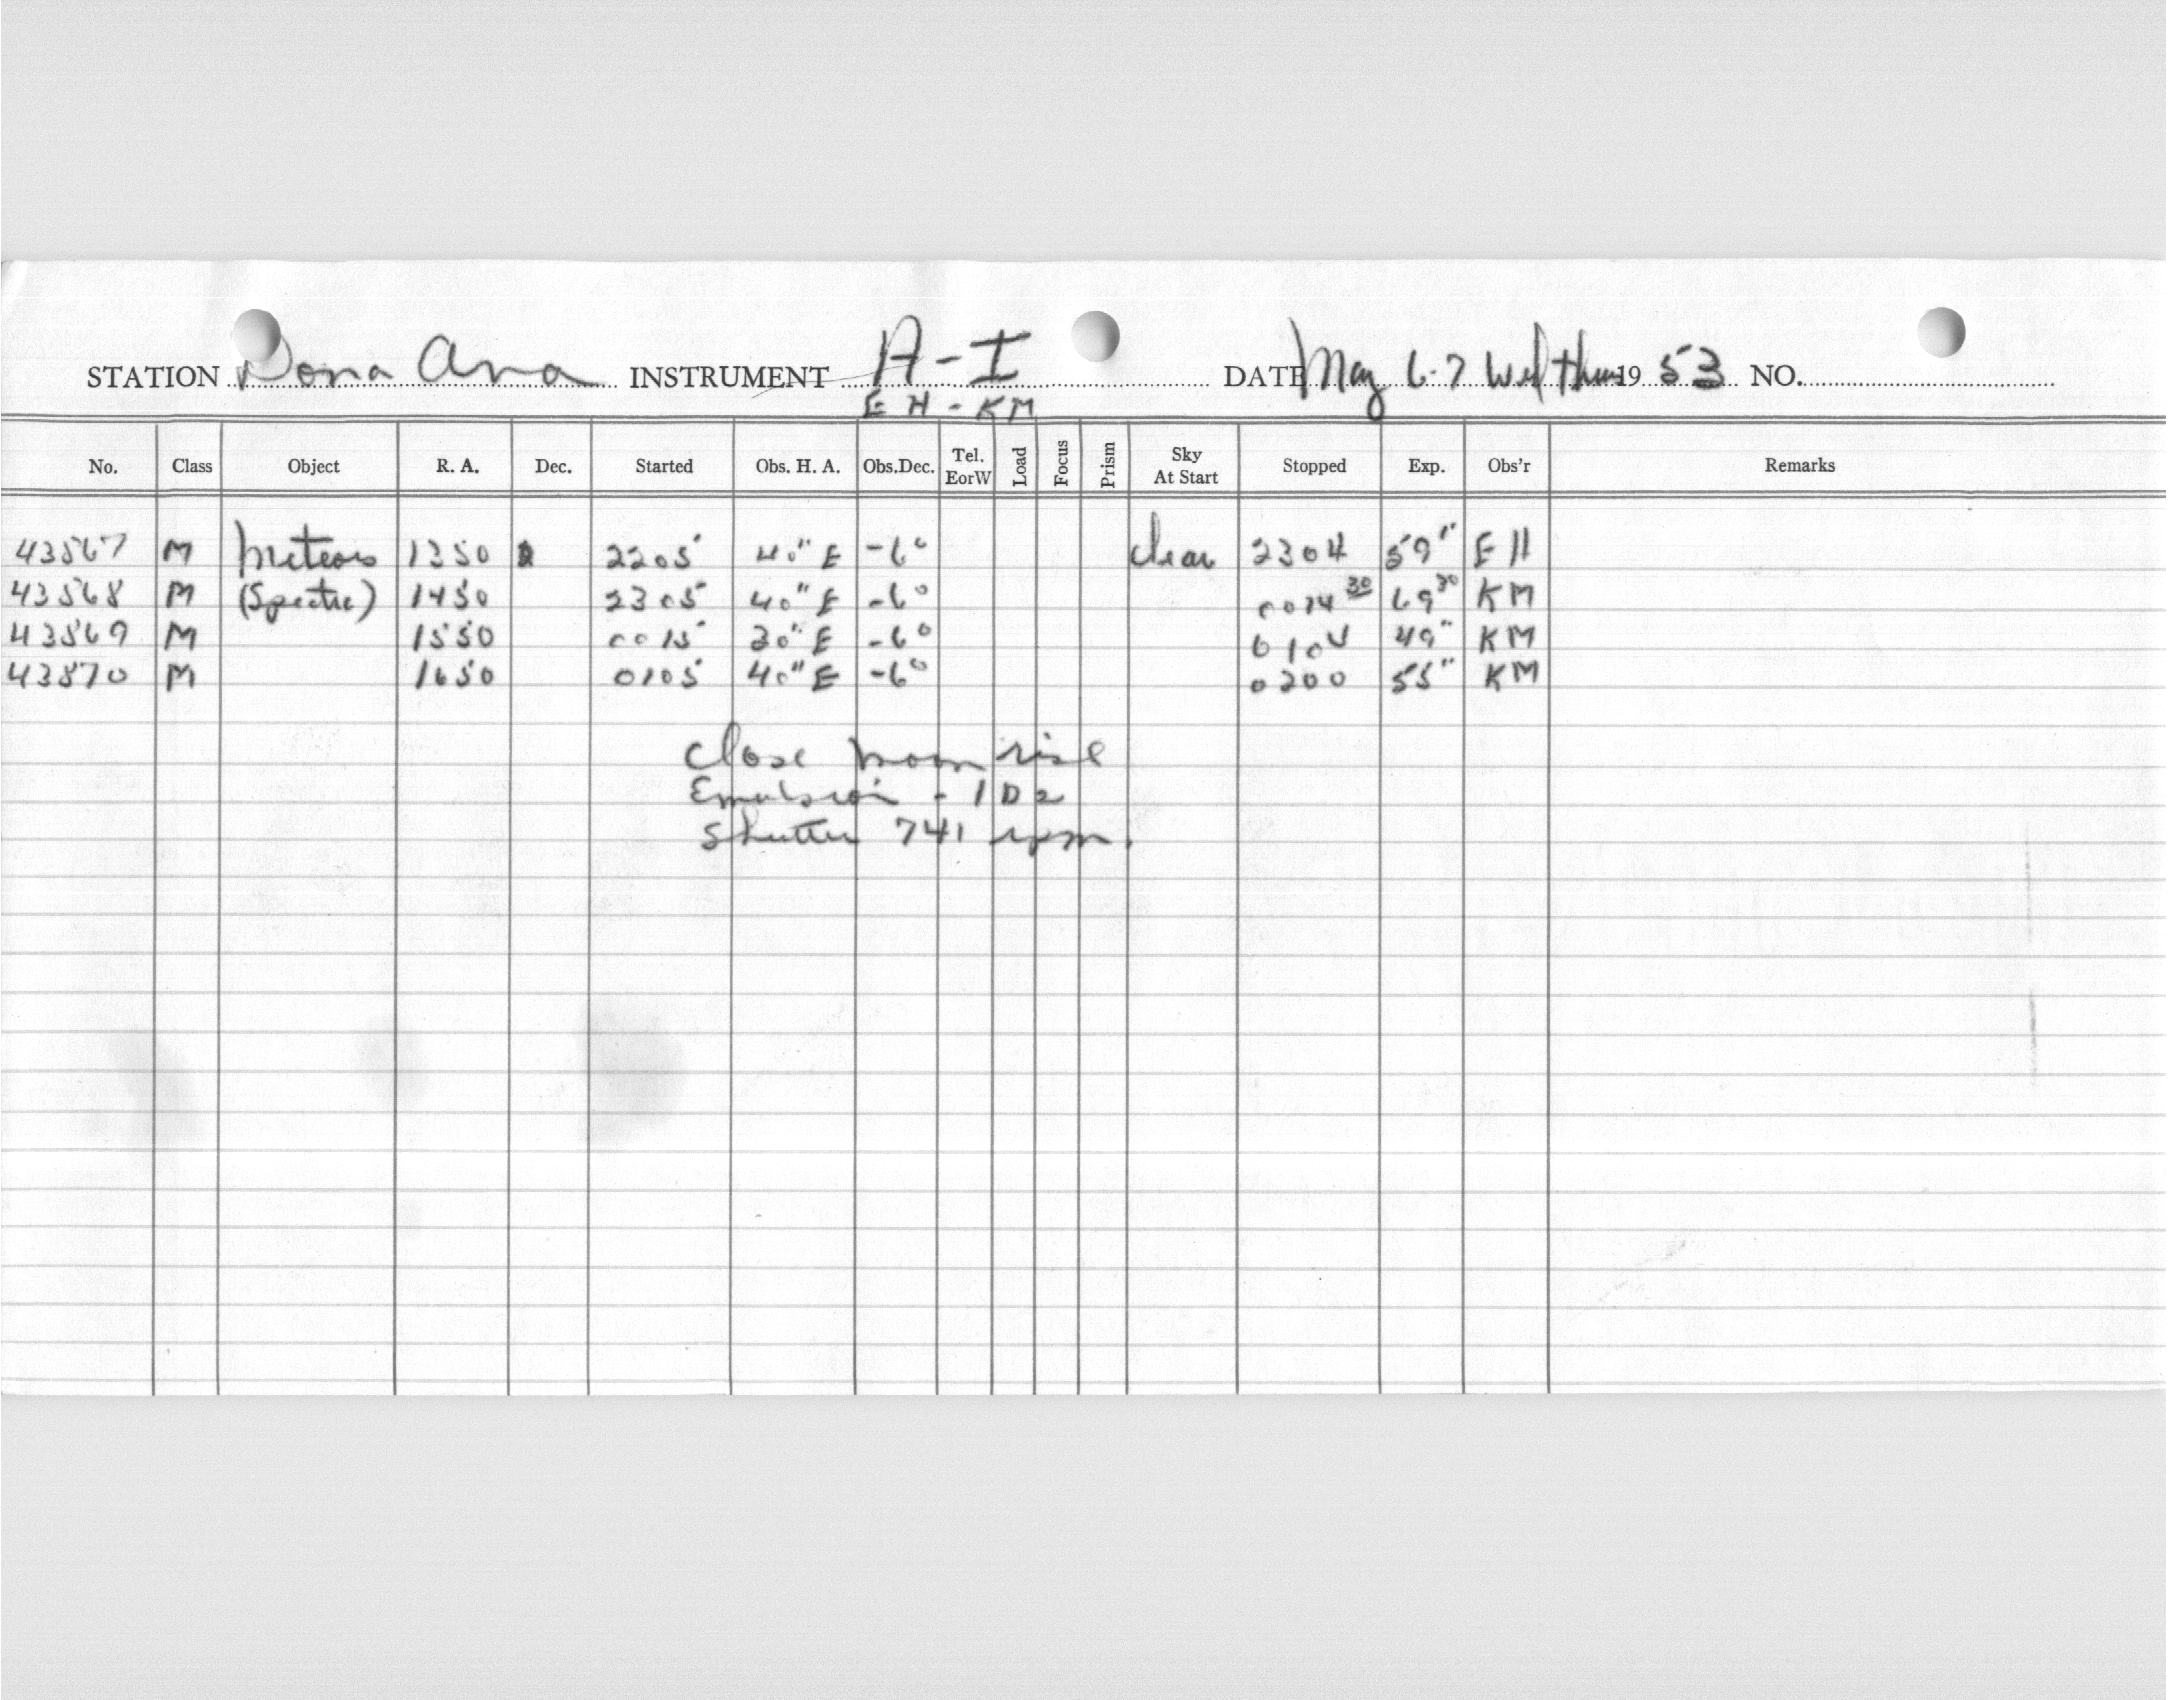 STATION Dona Ana INSTRUMENT A-I DATE May 6-7 Wed Thurs 1953 NO.
EH - KM
No. Class Object R. A. Dec. Started Obs. H. A. Obs.Dec. Tel. EorW Load Focus Prism Sky At Start Stopped Exp. Obs'r Remarks
43567 M Meteors 1350 2205 40" E -6° clear 2304 59" EH
43568 M (Spectra) 1450 2305 40" E -6° 0014 30 69 30 KM
43569 M 1550 0015 30" E -6° 0104 49" KM
43570 M 1650 0105 40" E -6° 0200 55" KM
Close moon rise
Emulsion - 1D2
Shutter 741 rpm.